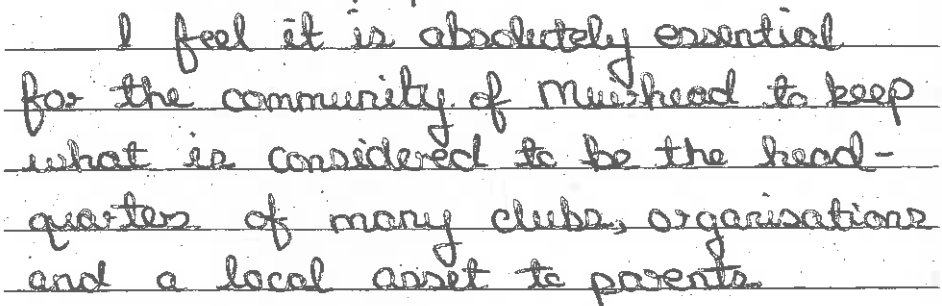 I feel it is absolutely essential
for the community of Muirhead to keep
what is considered to be the head-
quarter of many clubs, organisations
and a local asset to parents.